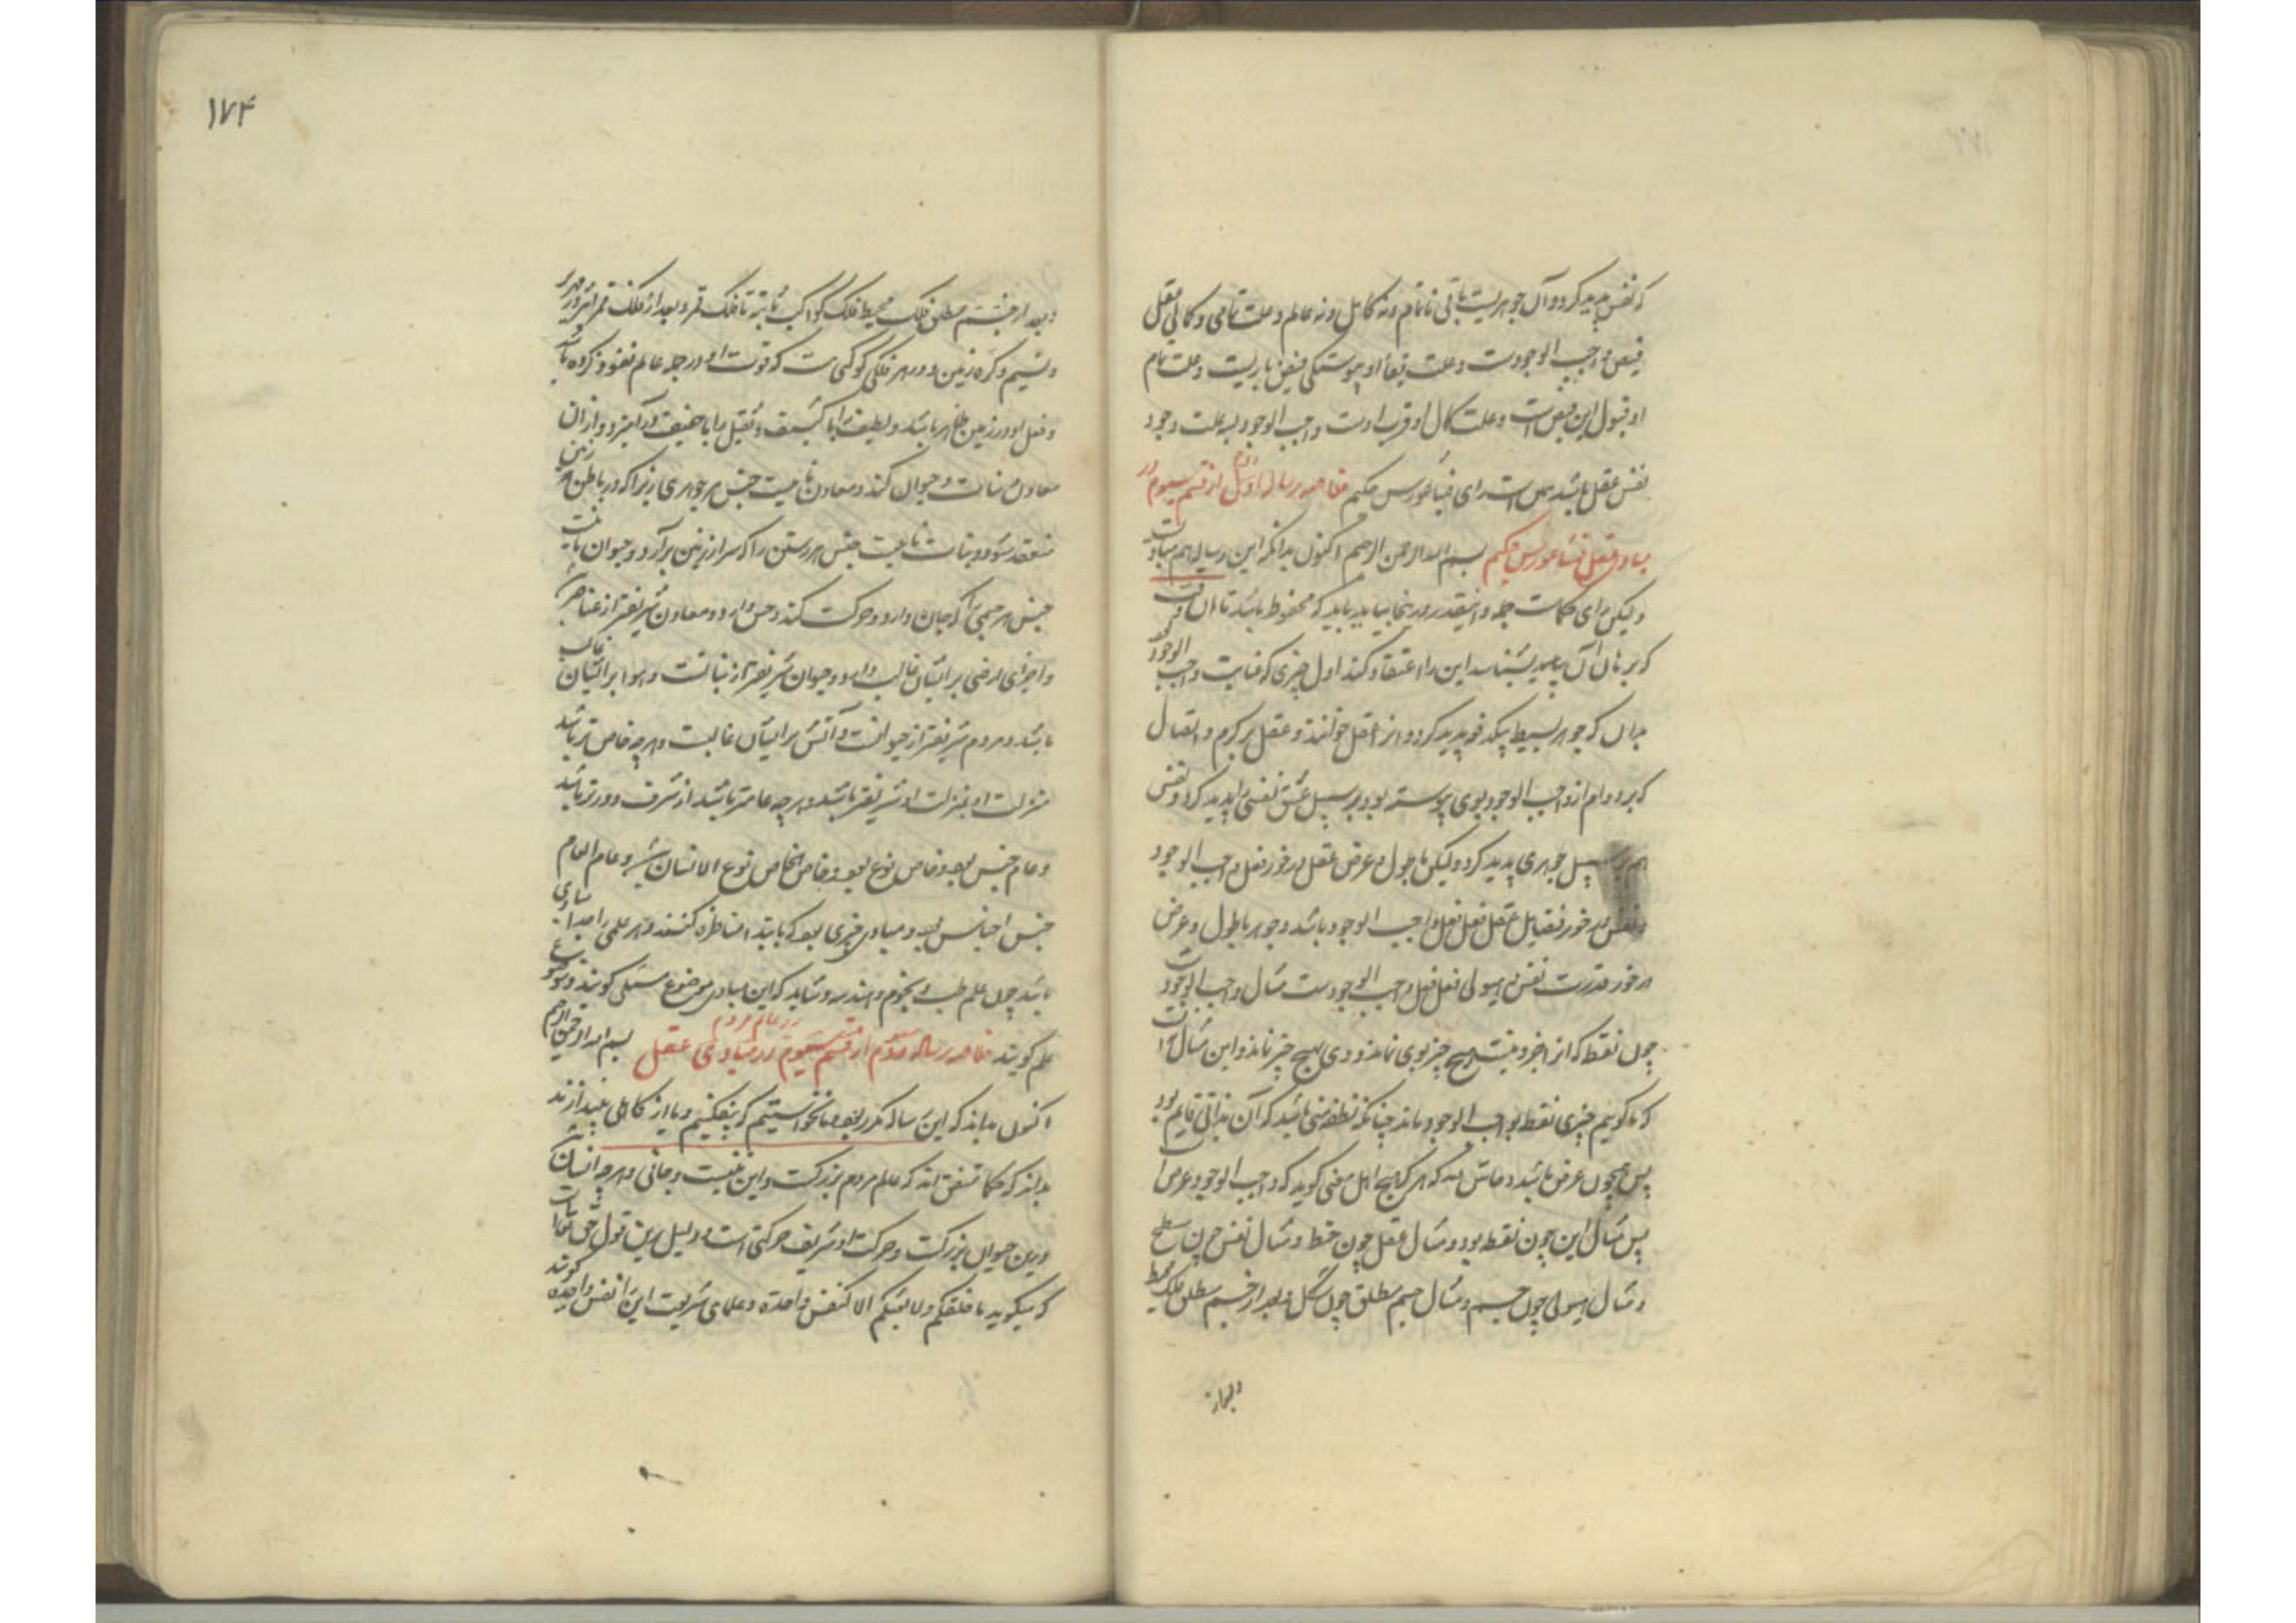 که نفس پدید کرد و آن جوهریست باقی نا تمام و نه کامل و نه عالم و علت تمامی و کمالی عقل
فیض واجب الوجودست و علت بقاء او پیوستگی فیض باریست و علت تمام
او قبول این فیض است و علت کمال او قرب اوست واجب الوجود به علت وجود
نفس عقل باشد این است رای فیثاغورس حکیم خلاصه رساله اول از قسم سیوم در
مبادی عقل فیثاغورس حکیم بسم الله الرحمن الرحیم اکنون بدانکه این رساله هم مبادیات
ولیکن رای حکمات جمله و اینقدر در اینجا بیاید باید که محفوظ باشد تا آن وقت
که برهان آن پدید بشناسد این را اعتقاد کند اول چیزی که عنایت واجب الوجود
بدان که جوهر بسیط پیکذ خو پدید کرد و انرا عقل خوانند و عقل بر کرم و اتصال
که بر دوام از واجب الوجود بوی پیوسته بود بر سبیل عشق نفس را پدید کرد و نفس
هم بر سبیل جوهری پدید کرد ولیکن با طول و عرض عقل در خور فعل واجب الوجود
و نفس در خور فضایل عقل فعل فعل واجب الوجود باشد و جوهر با طول و عرض
در خور قدرت نفس و هیولی فعل فعل واجب الوجودست مثال واجب الوجود
چون نقطه که انرا جزو نیست و هیچ چیز بوی نماند و وی بهیچ چیز نماند و این مثال
که ما گوییم چیزی نقطه بواجب الوجود ماند چنانکه نقطه منی باشد که آن بذاتی قایم بود
پس همچون عرض باشد و حاش لله که هرگز هیچ اهل معنی گوید که واجب الوجود عرض
پس مثال این چون نقطه بود و مثال عقل چون خط و مثال نفس چون سطح
و مثال هیولی چون جسم و مثال جسم مطلق چون شکل و بعد از جسم مطلق فلک محیط
و بعد از
۱۷۴
و بعد از جسم مطلق فلک محیط فلک کواکب ثابته تا فلک قمر و بعد از فلک قمر اثیر و زمهریر
و نسیم و کره زمین و در هر فلکی کوکبی است که قوت او در جمله عالم نفوذ کرده باشد
و فعل او در زمین ظاهر باشد و لطیف را با کثیف و ثقیل را با خفیف در آمیزد و از آن
معادن و نبات و حیوان کند و معادن تا میت جنس هر جوهری را که در باطن زمین
منعقد شود و نبات جنس هر رستن را که سر از زمین برآرد و حیوان
جنس هر جسمی را که جان دارد و حرکت کند و حس دارد و معادن شریفتر از عناصر
و اجزای ارضی بر ایشان غالب دارد و حیوان شریفتر از نباتست و هوا بر ایشان غالب
باشد و مردم شریفتر از حیوانست و آتش بر ایشان غالبست و هر چه خاص تر باشد
منزلت او بمنزلت او شریفتر باشد و هر چه عامتر باشد از شرف دورتر باشد
و عام جنس بود و خاص نوع بود و خاص الخاص نوع الانسان و عام العام
جنس اجناس بود و مبادی چیزی بود که بابتدا مناظره کنند و هر علمی را مبادی
باشد چون علم طب و نجوم و هندسه و شاید که این مبادی موضوع مسئلی گویند و موضوع
علم گویند خلاصه رساله دوم از قسم سیوم در مبادی عقل در عالم مردم بسم الله الرحمن الرحیم
اکنون بداند که این رساله مکرر بود و ما نخواستیم که بیفکنیم و ما از کاهلی پندارند
بداند که حکما متفق اند که عالم مردم بزرکست و این و جانی و هر چه انسان
و این حیوان بزرکست و حرکت او شریف حرکتی است و دلیل برین قول حق تعالی است
که میگوید ما خلقکم ولا بعثکم الا کنفس واحدة و علمای شریعت این را نفس واحده گویند